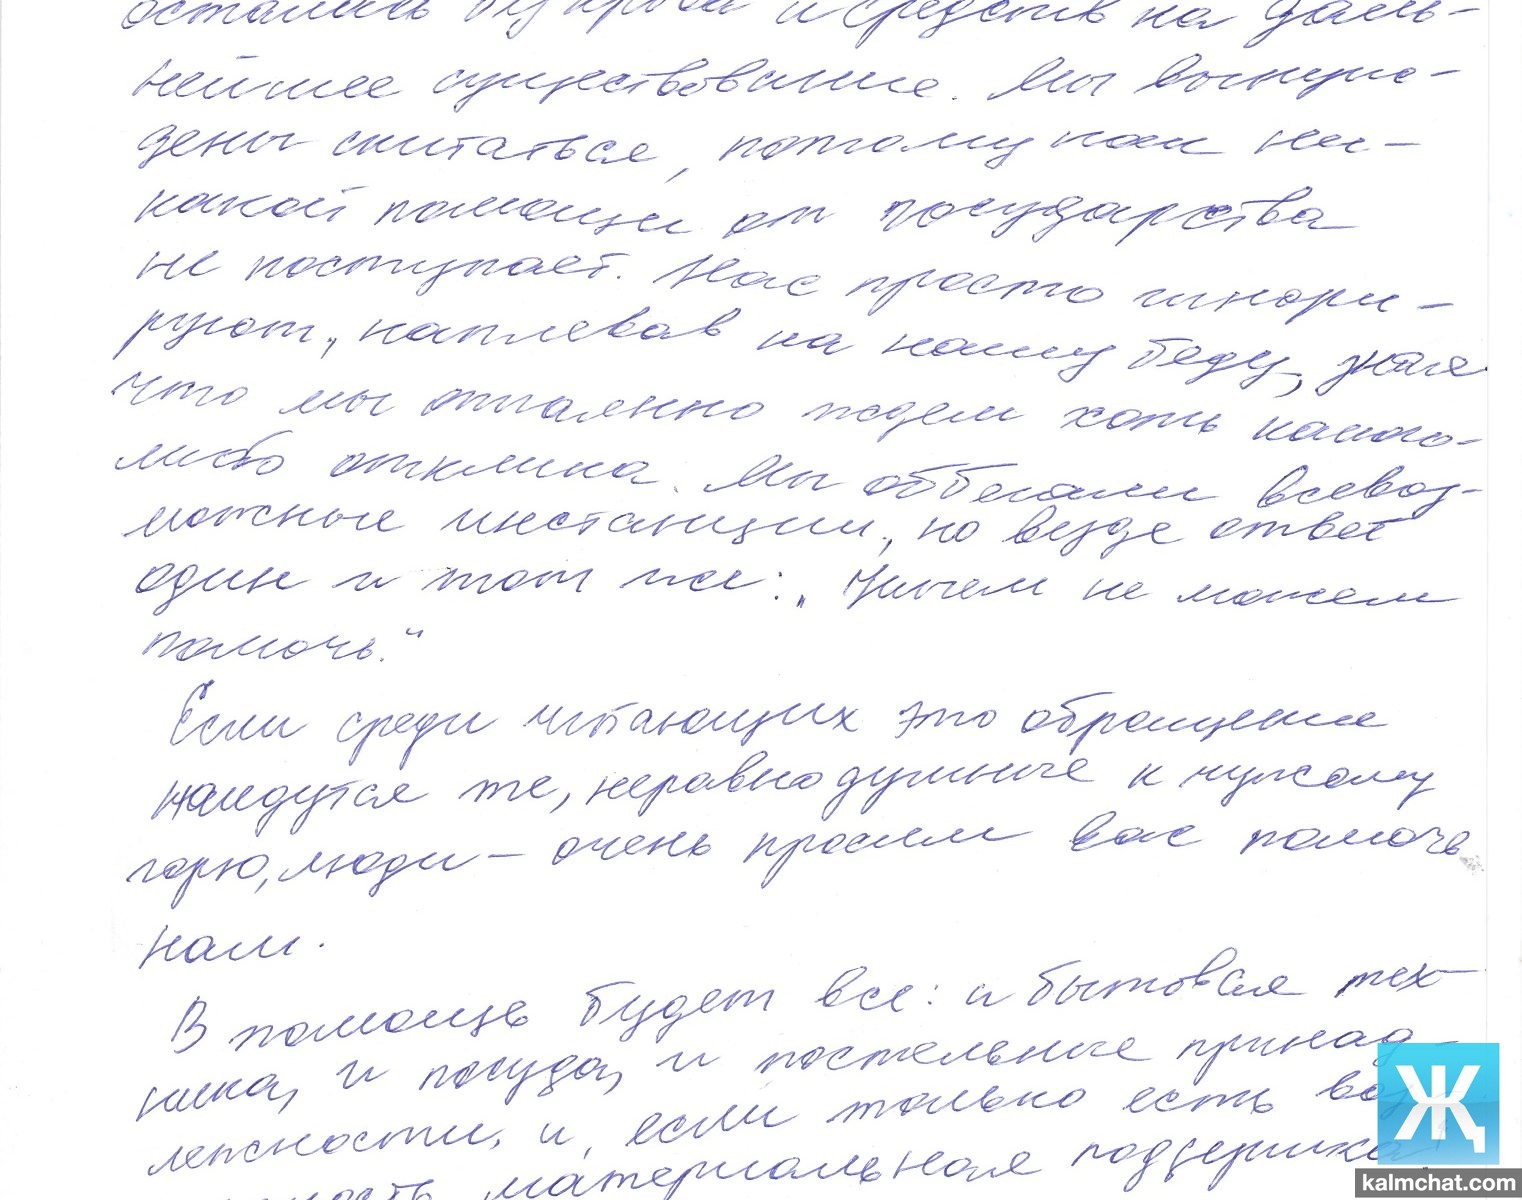 остались без крова и средств на даль-
нейшее существование. Мы вынуж-
дены скитаться, потому как ни-
какой помощи от государства
не поступает. Нас просто игнори-
руют, наплевав на нашу беду, зная
что мы отчаянно ждем хоть какого-
либо отклика. Мы оббегали всевоз-
можные инстанции, но везде ответ
один и тот же: „Ничем не можем
помочь."
Если среди читающих это обращение
найдутся те, неравнодушные к чужому
горю, люди – очень просим вас помочь
нам.
В помощь будет все: и бытовая тех-
ника, и посуда, и постельные принад-
лежности, и, если только есть воз
ность материальная поддержка
Җ
kalmchat.com